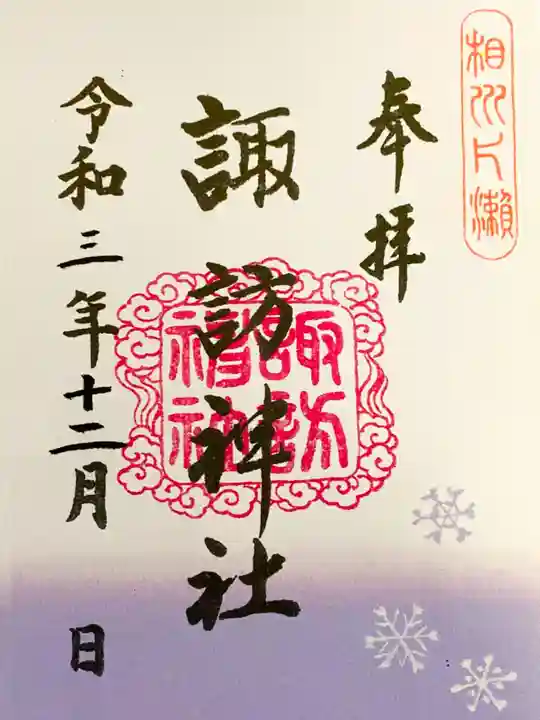 相州片瀬
奉拝
諏訪神社
諏訪神社
令和三年十二月 日